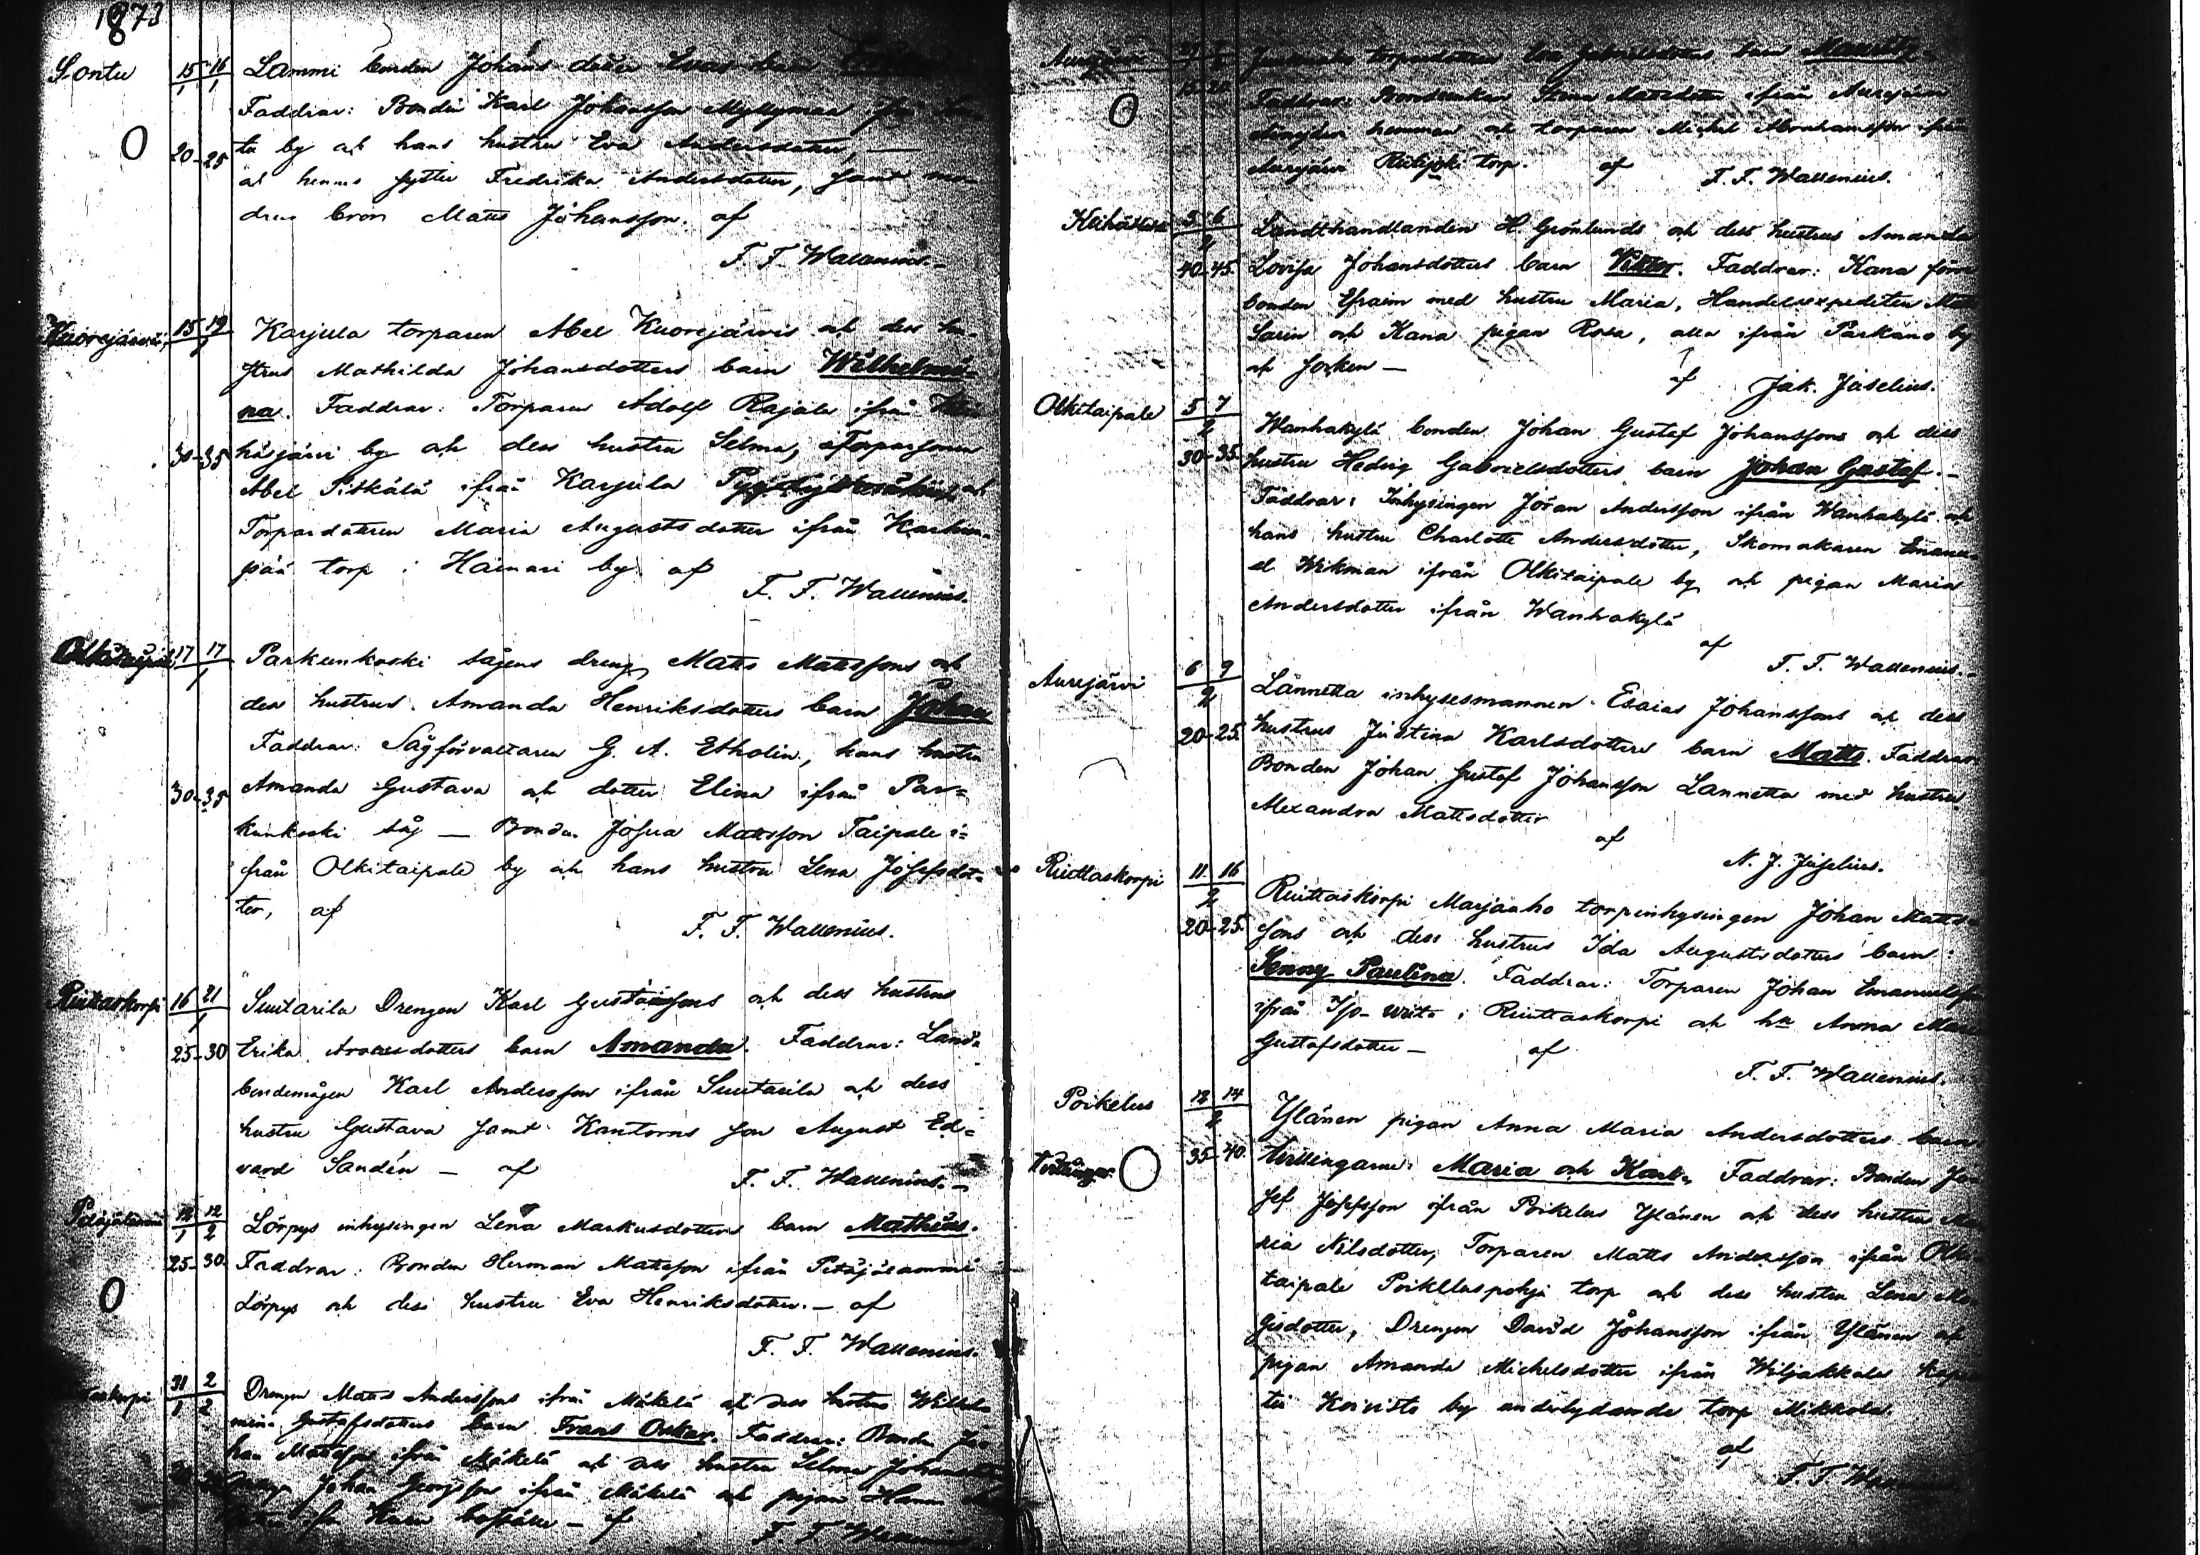 1873
Sontu 15 16 Lammi bonden Johans doter Evas barn
1 1
Faddrar: Bonden Karl Johansson Myllymaa ifrån
20-25 tu by och hans hustru Eva Andersdotter, —
och hennes syster Fredrika Andersdotter, samt mo-
dras bror Matts Johansson. af
F. F. Wallenius.
Kuorejärvi 15 19 Karjula torparen Abel Kuorejärvis och dess hu-
1
strus Mathilda Johansdotters barn Wilhelmi-
na. Faddrar: Torparen Adolf Rajala ifrån
30-35 häsjärvi by och dess hustru Selma, Torparsonen
Abel Pitkälä ifrån Karjula och
Torpardottren Maria Augustsdotter ifrån
pää torp i Hainari by. af
F. F. Wallenius.
Olkitaipale 17 17 Parkunkoski sågens dreng Matts Mattssons och
1
des hustrus Amanda Henriksdotters barn Johan
Faddrar: Sågförvaltaren G. A. Etholin, hans hustru
30-35 Amanda Gustava och dotter Elina ifrån Par-
kunkoski såg — Bonden Josua Mattsson Taipale i-
från Olkitaipale by och hans hustru Lena Josefsdot-
ter, af
F. F. Wallenius.
Riuttaskorpi 16 21 Suutarila Drengen Karl Gustafssons och dess hustrus
1
25-30 Erika dotters barn Amanda. Faddrar: Land-
bondemågen Karl Andersson ifrån Suutarila och dess
hustru Gustava samt Kantorns son August Ed-
vard Sandén — af
F. F. Wallenius.
12 12 Lörpys inhysingen Lena Markusdotters barn Mathias.
1 2
25-30 Faddrar: Bonden Herman Mattsson ifrån
Lörpys och dess hustru Eva Henriksdotter. — af
F. F. Wallenius.
31 2 Drengen Matts Anderssons ifrån Mäkelä och dess hustrus Wilhel-
1 2
mina Gustafsdotters barn Frans Oskar. Faddrar: Bonden Jo-
han Mattsson ifrån Mäkelä och dess hustru Selma
Johan Georgsson ifrån Mäkelä och pigan
— af
F. F.
Aurejärvi torpardottren Eva Gabrielsdotters barn Mauritz
15-20 Faddrar: Bondenkan Stina Mattsdotter ifrån Aurejärvi
hemman och torparen Michel Abrahamsson ifrån
Aurejärvi Riutijoki torp. af F. F. Wallenius.
5 6 Landthandlanden H. Grönlunds och dess hustrus Amanda
2
40-45. Lovisa Johansdotters barn Viktor. Faddrar: Kana förre
bonden Efraim med hustru Maria, Handelsexpediten
Sarin och Kana pigan Rosa, alla ifrån Parkano by
och socken —
af Jak. Jäselius.
Olkitaipale 5 7 Wanhakylä bonden Johan Gustaf Johanssons och dess
2
30-35. hustru Hedvig Gabrielsdotters barn Johan Gustaf. —
Faddrar: Inhysingen Jöran Andersson ifrån Wanhakylä och
hans hustru Charlotte Andersdotter, Skomakaren Emanu-
el Wikman ifrån Olkitaipale by och pigan Maria
Andersdotter ifrån Wanhakylä
af
F. F. Wallenius.
Aurejärvi 6 9 Lännetta inhysesmannen Esaias Johanssons och dess
2
20-25. hustrus Justina Karlsdotters barn Matts. Faddrar
Bonden Johan Gustaf Johansson Lannetta med hustru
Alexandra Mattsdotter
af
N. J. Jäselius.
Riuttaskorpi 11 16 Riuttaskorpi Marjaaho torpinhysingen Johan Matts-
2
20-25. sons och dess hustrus Ida Augustsdotters barn:
Jenny Paulina. Faddrar: Torparen Johan
ifrån i Riuttaskorpi och hn Anna
Gustafsdotter — af
F. F. Wallenius.
Poikelus 12 14 Ylänen pigan Anna Maria Andersdotters barn
2
Tvillingar 35-40. tvillingarne: Maria och Karl. Faddrar: Bonden Jo-
sef Josefsson ifrån Poikelus Ylänen och dess hustru Ma-
ria Nilsdotter, Torparen Matts Andersson ifrån Olki-
taipale Poikeluspohja torp och dess hustru Lena
gisdotter, Drengen David Johansson ifrån Ylänen och
pigan Amanda Michelsdotter ifrån Wiljakkala
Koivisto by underlydande torp Mikkola.
af
F. F.